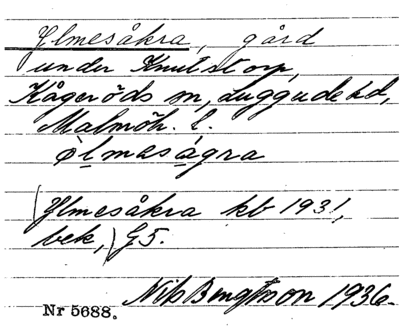 Ylmesåkra, gård
under Knutstorp,
Kågeröds sn, Luggude hd,
Malmöh. l.
ølmasågra
(Ylmesåkra kb 1931,
bek,) G5.
Nils Bengtsson 1936.
Nr 5688.